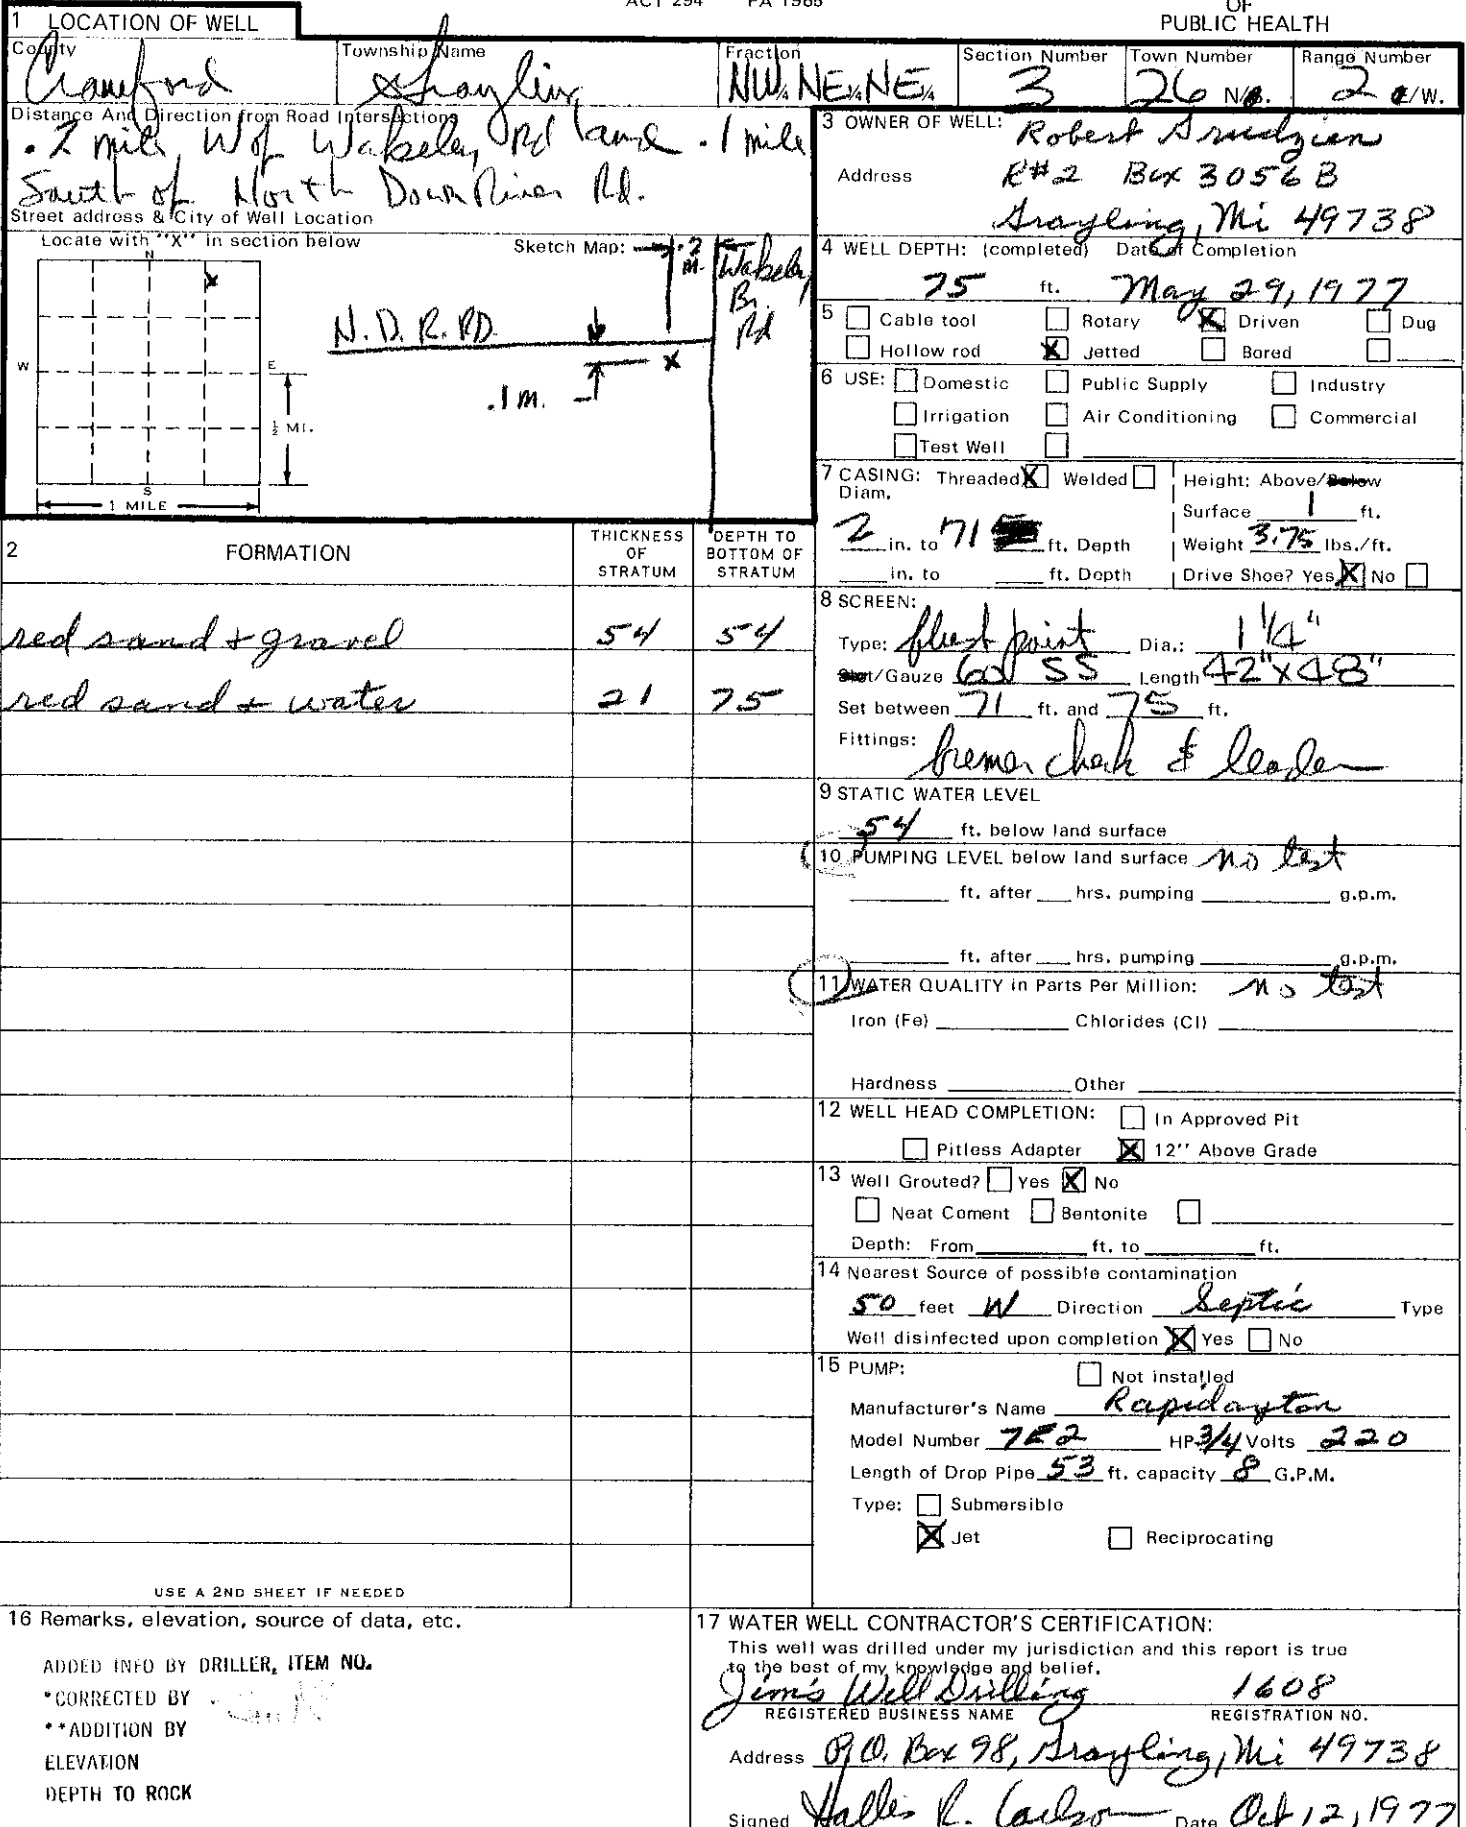 ACT 294 PA 1965
OF
PUBLIC HEALTH
1 LOCATION OF WELL
County Township Name Fraction Section Number Town Number Range Number
Crawford Grayling NW¼ NE¼ NE¼ 3 26 N/S. 2 E/W.
Distance And Direction from Road Intersections
.2 mile W of Wakeley Rd and .1 mile
South of North Down River Rd.
Street address & City of Well Location
Locate with "X" in section below Sketch Map:
N
X
W
E
S
½ MI.
1 MILE
.2 M.
Wakeley Br. Rd
N. D. R. RD.
X
.1 M.
3 OWNER OF WELL: Robert Grudzien
Address R#2 Box 3056 B
Grayling, Mi 49738
4 WELL DEPTH: (completed) Date of Completion
75 ft. May 29, 1977
5 Cable tool Rotary X Driven Dug
Hollow rod X Jetted Bored
6 USE: Domestic Public Supply Industry
Irrigation Air Conditioning Commercial
Test Well
7 CASING: Threaded X Welded Height: Above/Below
Diam. Surface 1 ft.
2 in. to 71 ft. Depth Weight 3.75 lbs./ft.
in. to ft. Depth Drive Shoe? Yes X No
2 FORMATION THICKNESS OF STRATUM DEPTH TO BOTTOM OF STRATUM
red sand + gravel 54 54
red sand + water 21 75
8 SCREEN:
Type: point Dia.: 1 1/4"
Slot/Gauze 60 SS Length 42"x48"
Set between 71 ft. and 75 ft.
Fittings: bremer check & leader
9 STATIC WATER LEVEL
54 ft. below land surface
10 PUMPING LEVEL below land surface no test
ft. after hrs. pumping g.p.m.
ft. after hrs. pumping g.p.m.
11 WATER QUALITY in Parts Per Million: no test
Iron (Fe) Chlorides (Cl)
Hardness Other
12 WELL HEAD COMPLETION: In Approved Pit
Pitless Adapter X 12'' Above Grade
13 Well Grouted? Yes X No
Neat Cement Bentonite
Depth: From ft. to ft.
14 Nearest Source of possible contamination
50 feet W Direction Septic Type
Well disinfected upon completion X Yes No
15 PUMP: Not installed
Manufacturer's Name Rapidayton
Model Number 7E2 HP 3/4 Volts 220
Length of Drop Pipe 53 ft. capacity 8 G.P.M.
Type: Submersible
X Jet Reciprocating
USE A 2ND SHEET IF NEEDED
16 Remarks, elevation, source of data, etc.
ADDED INFO BY DRILLER, ITEM NO.
*CORRECTED BY
**ADDITION BY
ELEVATION
DEPTH TO ROCK
17 WATER WELL CONTRACTOR'S CERTIFICATION:
This well was drilled under my jurisdiction and this report is true
to the best of my knowledge and belief.
Jim's Well Drilling 1608
REGISTERED BUSINESS NAME REGISTRATION NO.
Address P.O. Box 98, Grayling, Mi 49738
Signed R. Carlson Date Oct 12, 1977